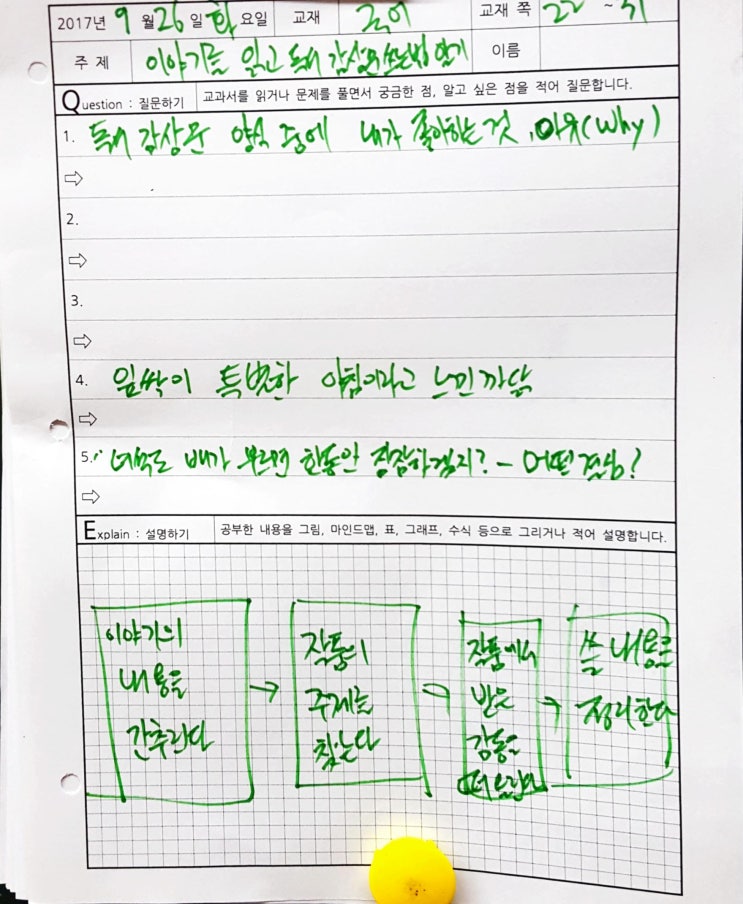 2017년 9 월 26 일 화 요일 교재 국어 교재 쪽 22 ~ 31
주 제 이야기를 읽고 독서 감상문 쓰는 방법 알기 이름
Question : 질문하기 교과서를 읽거나 문제를 풀면서 궁금한 점, 알고 싶은 점을 적어 질문합니다.
1. 독서 감상문 양식 중에 내가 좋아하는 것, 이유(Why)
⇨
2.
⇨
3.
⇨
4. 잎싹이 특별한 아침이라고 느낀 까닭
⇨
5. 녀석도 배가 부르면 한동안 잠잠하겠지? - 어떤 결심?
⇨
Explain : 설명하기 공부한 내용을 그림, 마인드맵, 표, 그래프, 수식 등으로 그리거나 적어 설명합니다.
이야기의
내용을
간추린다
→
작품의
주제를
찾는다
→
작품에서
받은
감동을
떠올린다
→
쓸 내용을
정리한다